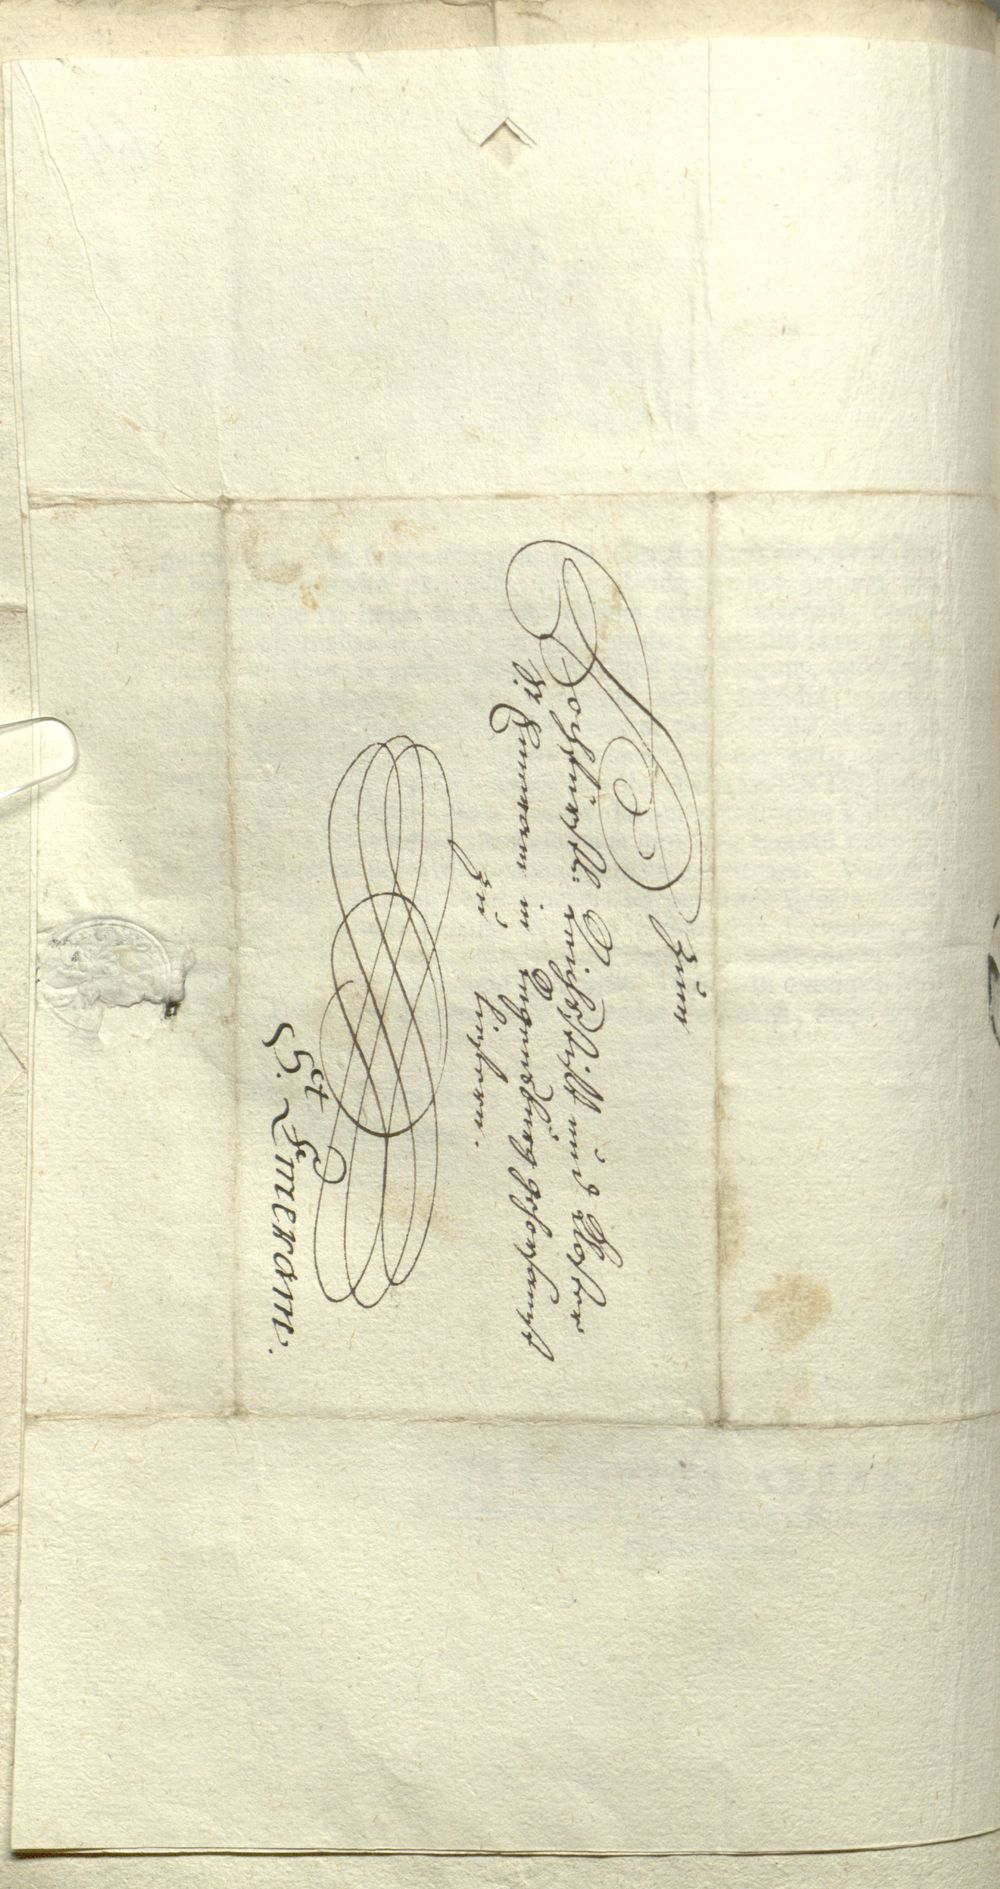 Zum
Hochfürstl. Reichsstift und Closter
St. Emmeram in Regensburg gehorsamst
zu liefern.
St. Emeram.